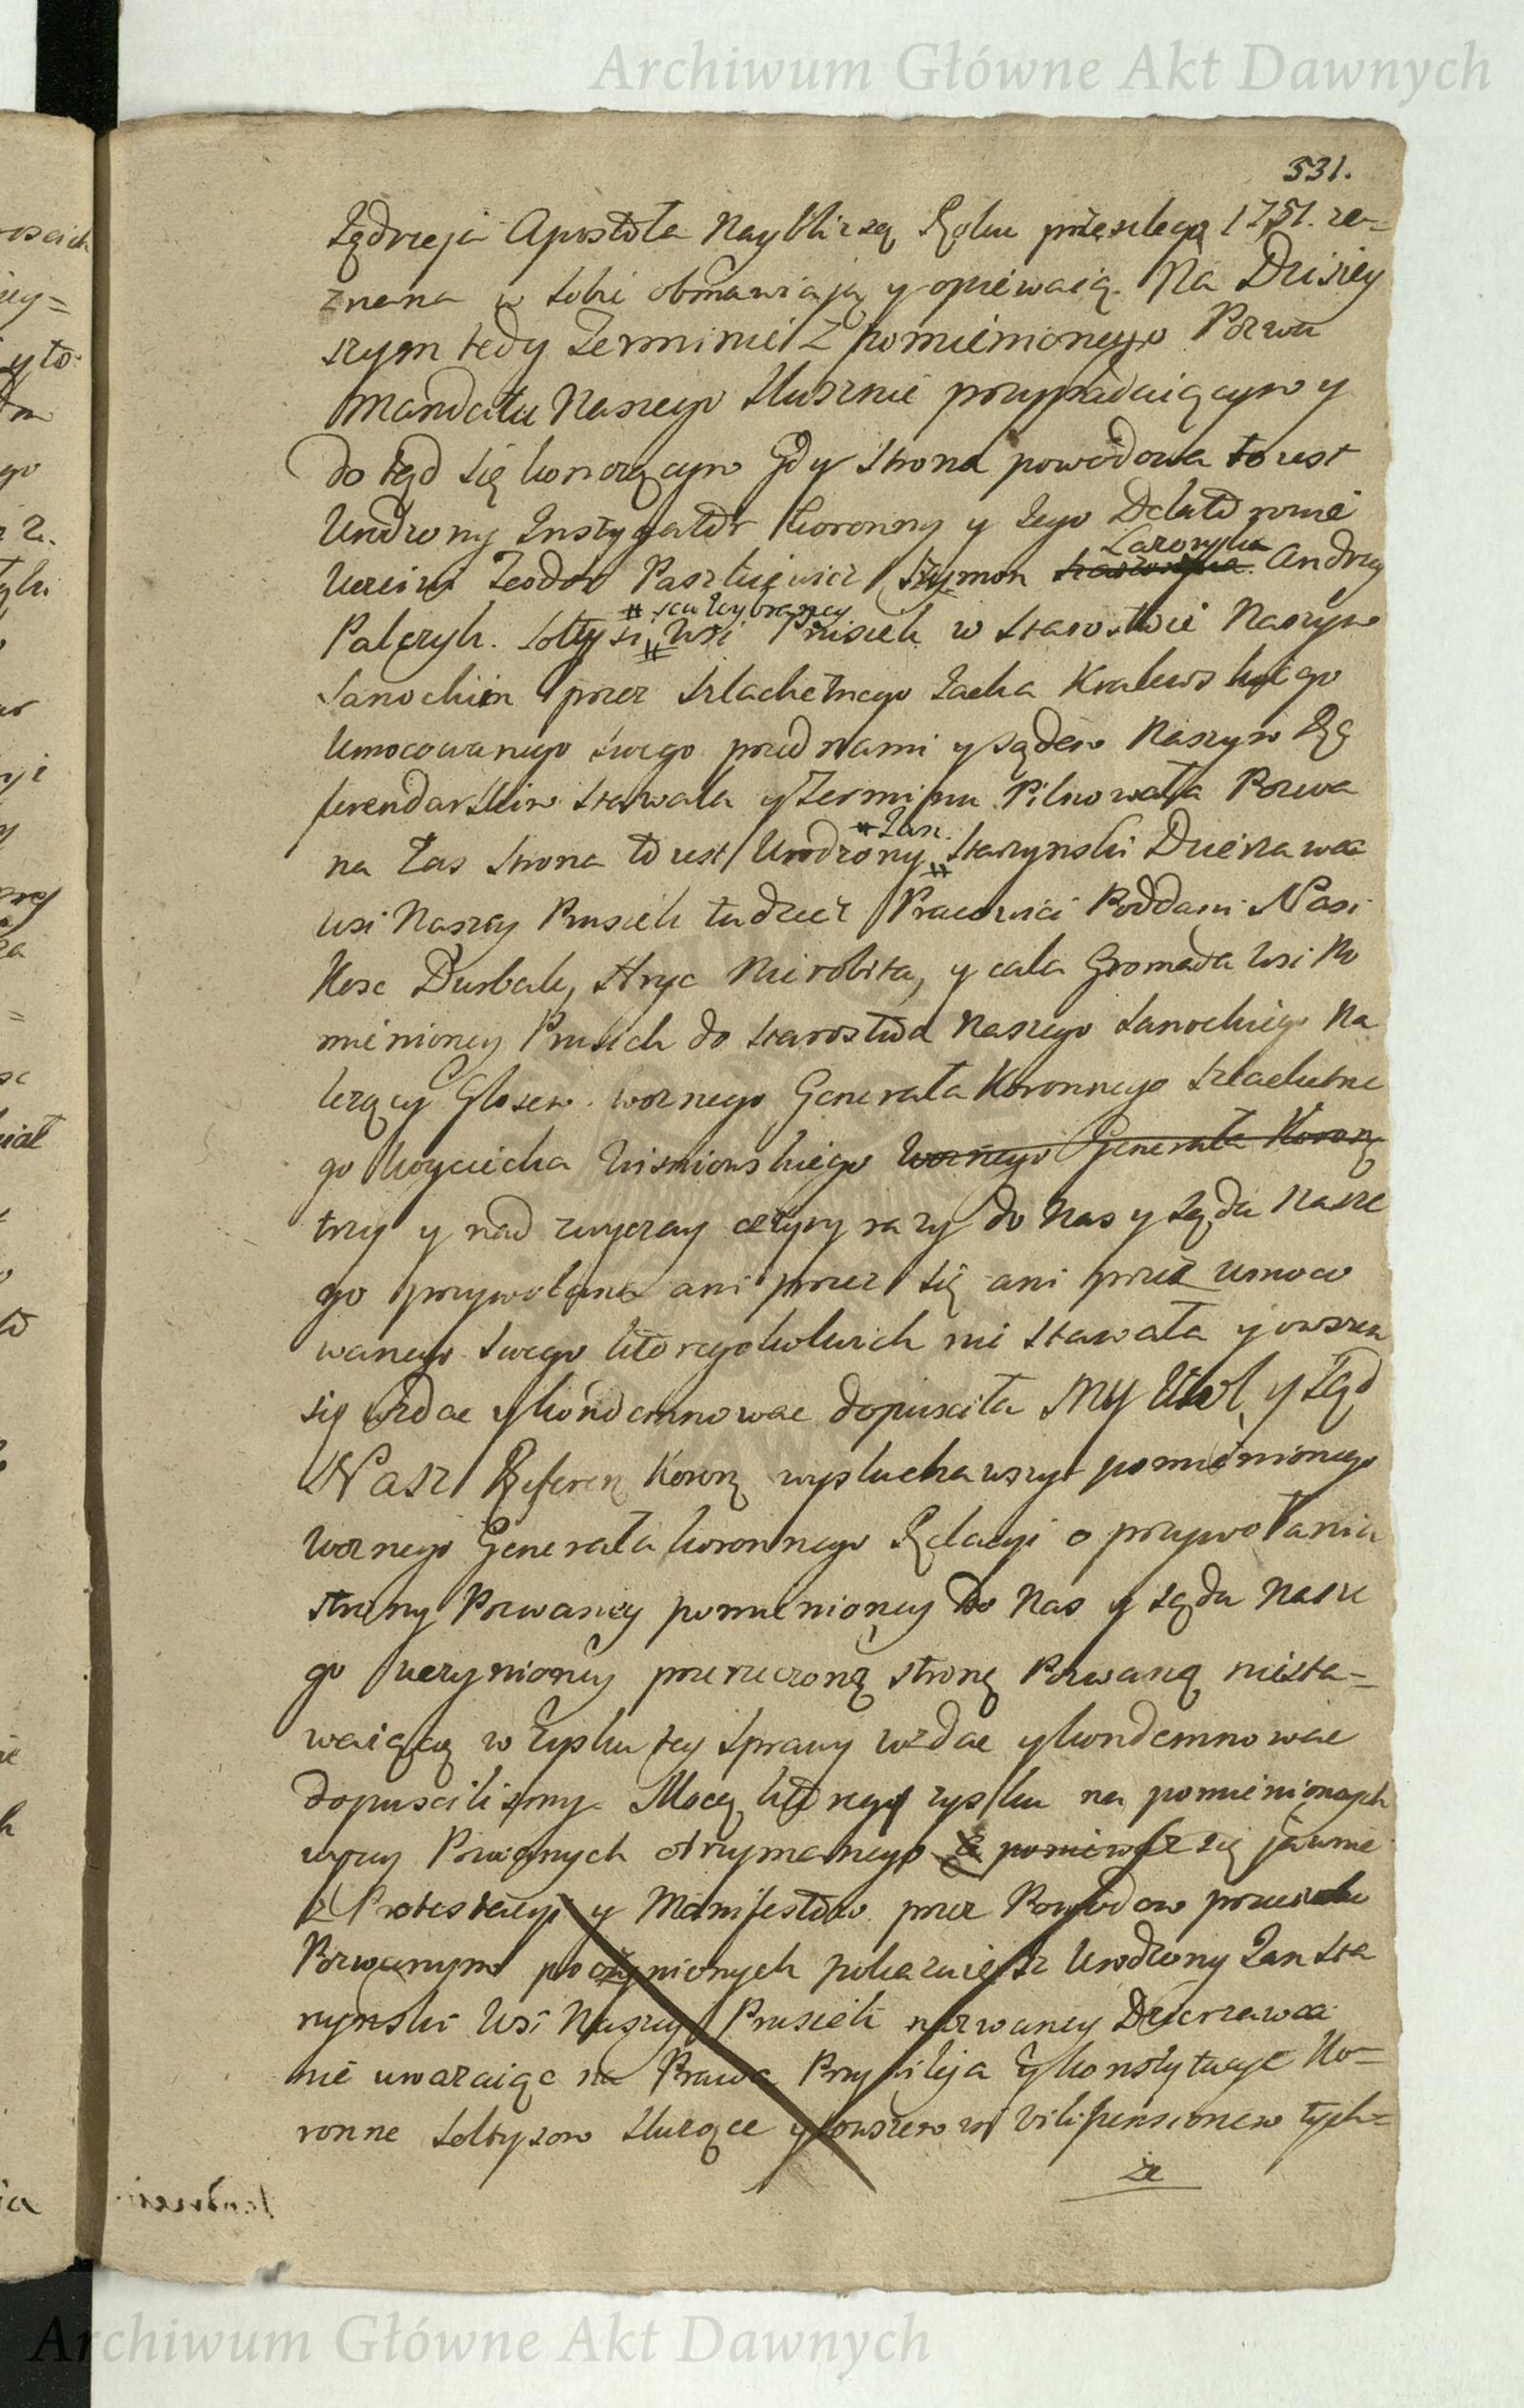 Archiwum Główne Akt Dawnych
531.
Jędrzeja Apostoła Naybliszą Roku przeszłego 1751. ze=
znana w sobie obmawiają y opiewaią. Na Dzisiey
szym tedy Terminie z pomienionego Pozwu
Mandatu Naszego słusznie przypadaiącym y
do tąd się konczącym Gdy strona powodowa to iest
Urodzony Instygator Koronny y Jego Delatorowie
Uczciwi Teodor Paszkiewicz Szymon Łazoryka Andrzey
Palczyk. Sołtysi # seu Wybrancy Wsi Prusiek w Starostwie Naszym
Sanockim przez Szlachetnego Jacka Kralewskiego
Umocowanego swego przed Nami y Sądem Naszym Re
ferendarskim stawała y Terminu Pilnowała Pozwa
na zas strona to iest Urodzony # Jan Staszynski Dzierzawca
wsi Naszey Prusiek tudziez Pracowici Poddani Nasi
Kosc Durbak, Hryc Nierobita, y cała Gromada wsi Po
mienioney Prusiek do Starostwa Naszego Sanockiego Na
lezący Głosem woznego Generała Koronnego Szlachetne
go Woyciecha Wisniowskiego Woznego Generała Koronn
trzy y nad zwyczay cztyry razy do Nas y Sądu Nasze
go przywołana ani przez się ani przez Umoco
wanego swego ktoregokolwiek nie stawała y owszem
się wzdac y kondemnowac dopusciła My Krol y Sąd
Nasz Referen Koron wysłuchawszy pomienionego
Woznego Generała koronnego Relacyi o przywołaniu
strony Pozwaney pomienioney do Nas y Sądu Nasze
go uczynioney przerzeczoną stronę Pozwaną niesta=
waiącą w zysku tey sprawy wzdac y kondemnowac
dopuscilismy. Mocą ktorego zysku na pomienionych
wyzey Pozwanych otrzymanego poniewasz się jawnie
z Protestacyi y Manifestow przez Powodow przeciwko
Pozwanym poczynionych pokazuie isz Urodzony Jan Sta
rzynski Wsi Naszey Prusiek nazwaney Dzierzawca
nie uwazaiąc na Prawa Przywileja y Konstytucye Ko=
ronne Sołtysow słuzące y owszem in vilipensionem tych=
ze
Archiwum Główne Akt Dawnych